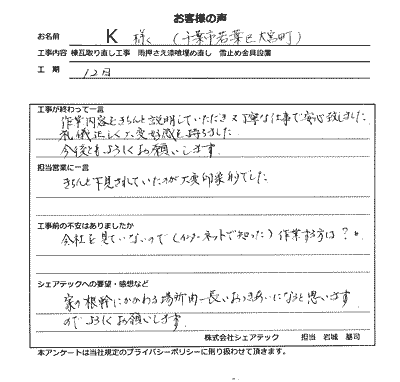 お客様の声
お名前 K 様 (千葉市若葉区大宮町)
工事内容 棟瓦取り直し工事 雨押さえ漆喰埋め直し 雪止め金具設置
工期 12日
工事が終わって一言
作業内容をきちんと説明していただき又丁寧な仕事で安心致しました
礼儀正しく大変好感を持ちました
今後ともよろしくお願いします。
担当営業に一言
きちんと下見されていたのが大変印象的でした
工事前の不安はありましたか
会社を見ていないので(インターネットで知った)作業する方は?。
シェアテックへの要望・感想など
家の根幹にかかわる場所 長いおつきあいになると思います
のでよろしくお願いします
株式会社シェアテック 担当 岩城 基司
本アンケートは当社規定のプライバシーポリシーに則り扱わせて頂きます。